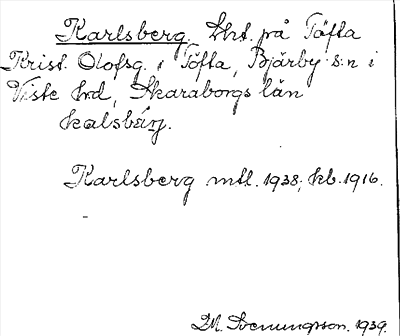 Karlsberg. Lht. på Töfta
Krist. Olofsg. i Töfta, Bjärby s:n i
Viste hd, Skaraborgs län
kalsbärj.
Karlsberg mtl. 1938; kb. 1916.
M. Svenungsson. 1939.